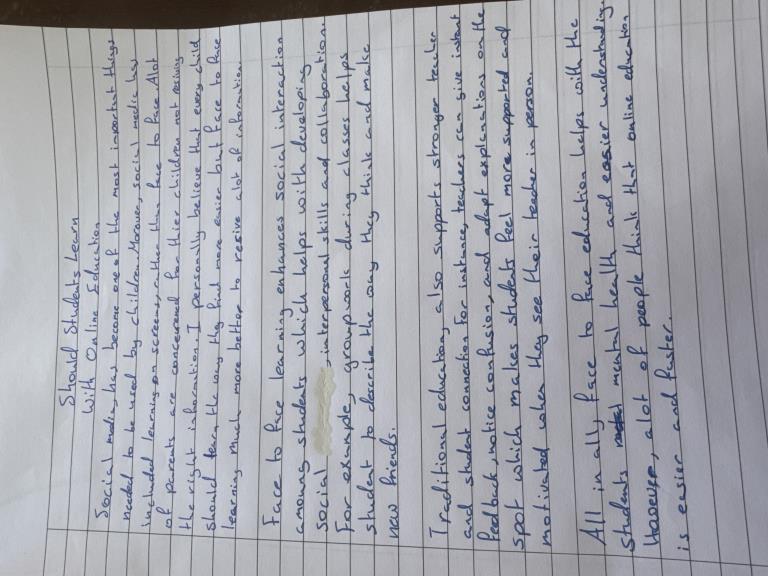 Should Students Learn
With Online Education
Social media, has become one of the most important things
needed to be used by children. Morover, social media has
included learning on screens, rather than face to face. Alot
of parents are concerened for thier children not reciving
the right information. I personally believe that every child
should learn the way they find more easier but face to face
learning much more better to recive alot of information.
Face to face learning enhances social interaction
amoung students which helps with developing
social interpersonal skills and collaboration.
For example, groupwork during classes helps
student to describe the way they think and make
new friends.
Traditional education, also supports stronger teacher
and student connection. For instance, teachers can give instant
feedback, notice confusion, and adapt explanations on the
spot which makes students feel more supported and
motivated when they see their teacher in person.
All in all, face to face education helps with the
students mental health and easier understanding.
However, alot of people think that online education
is easier and faster.